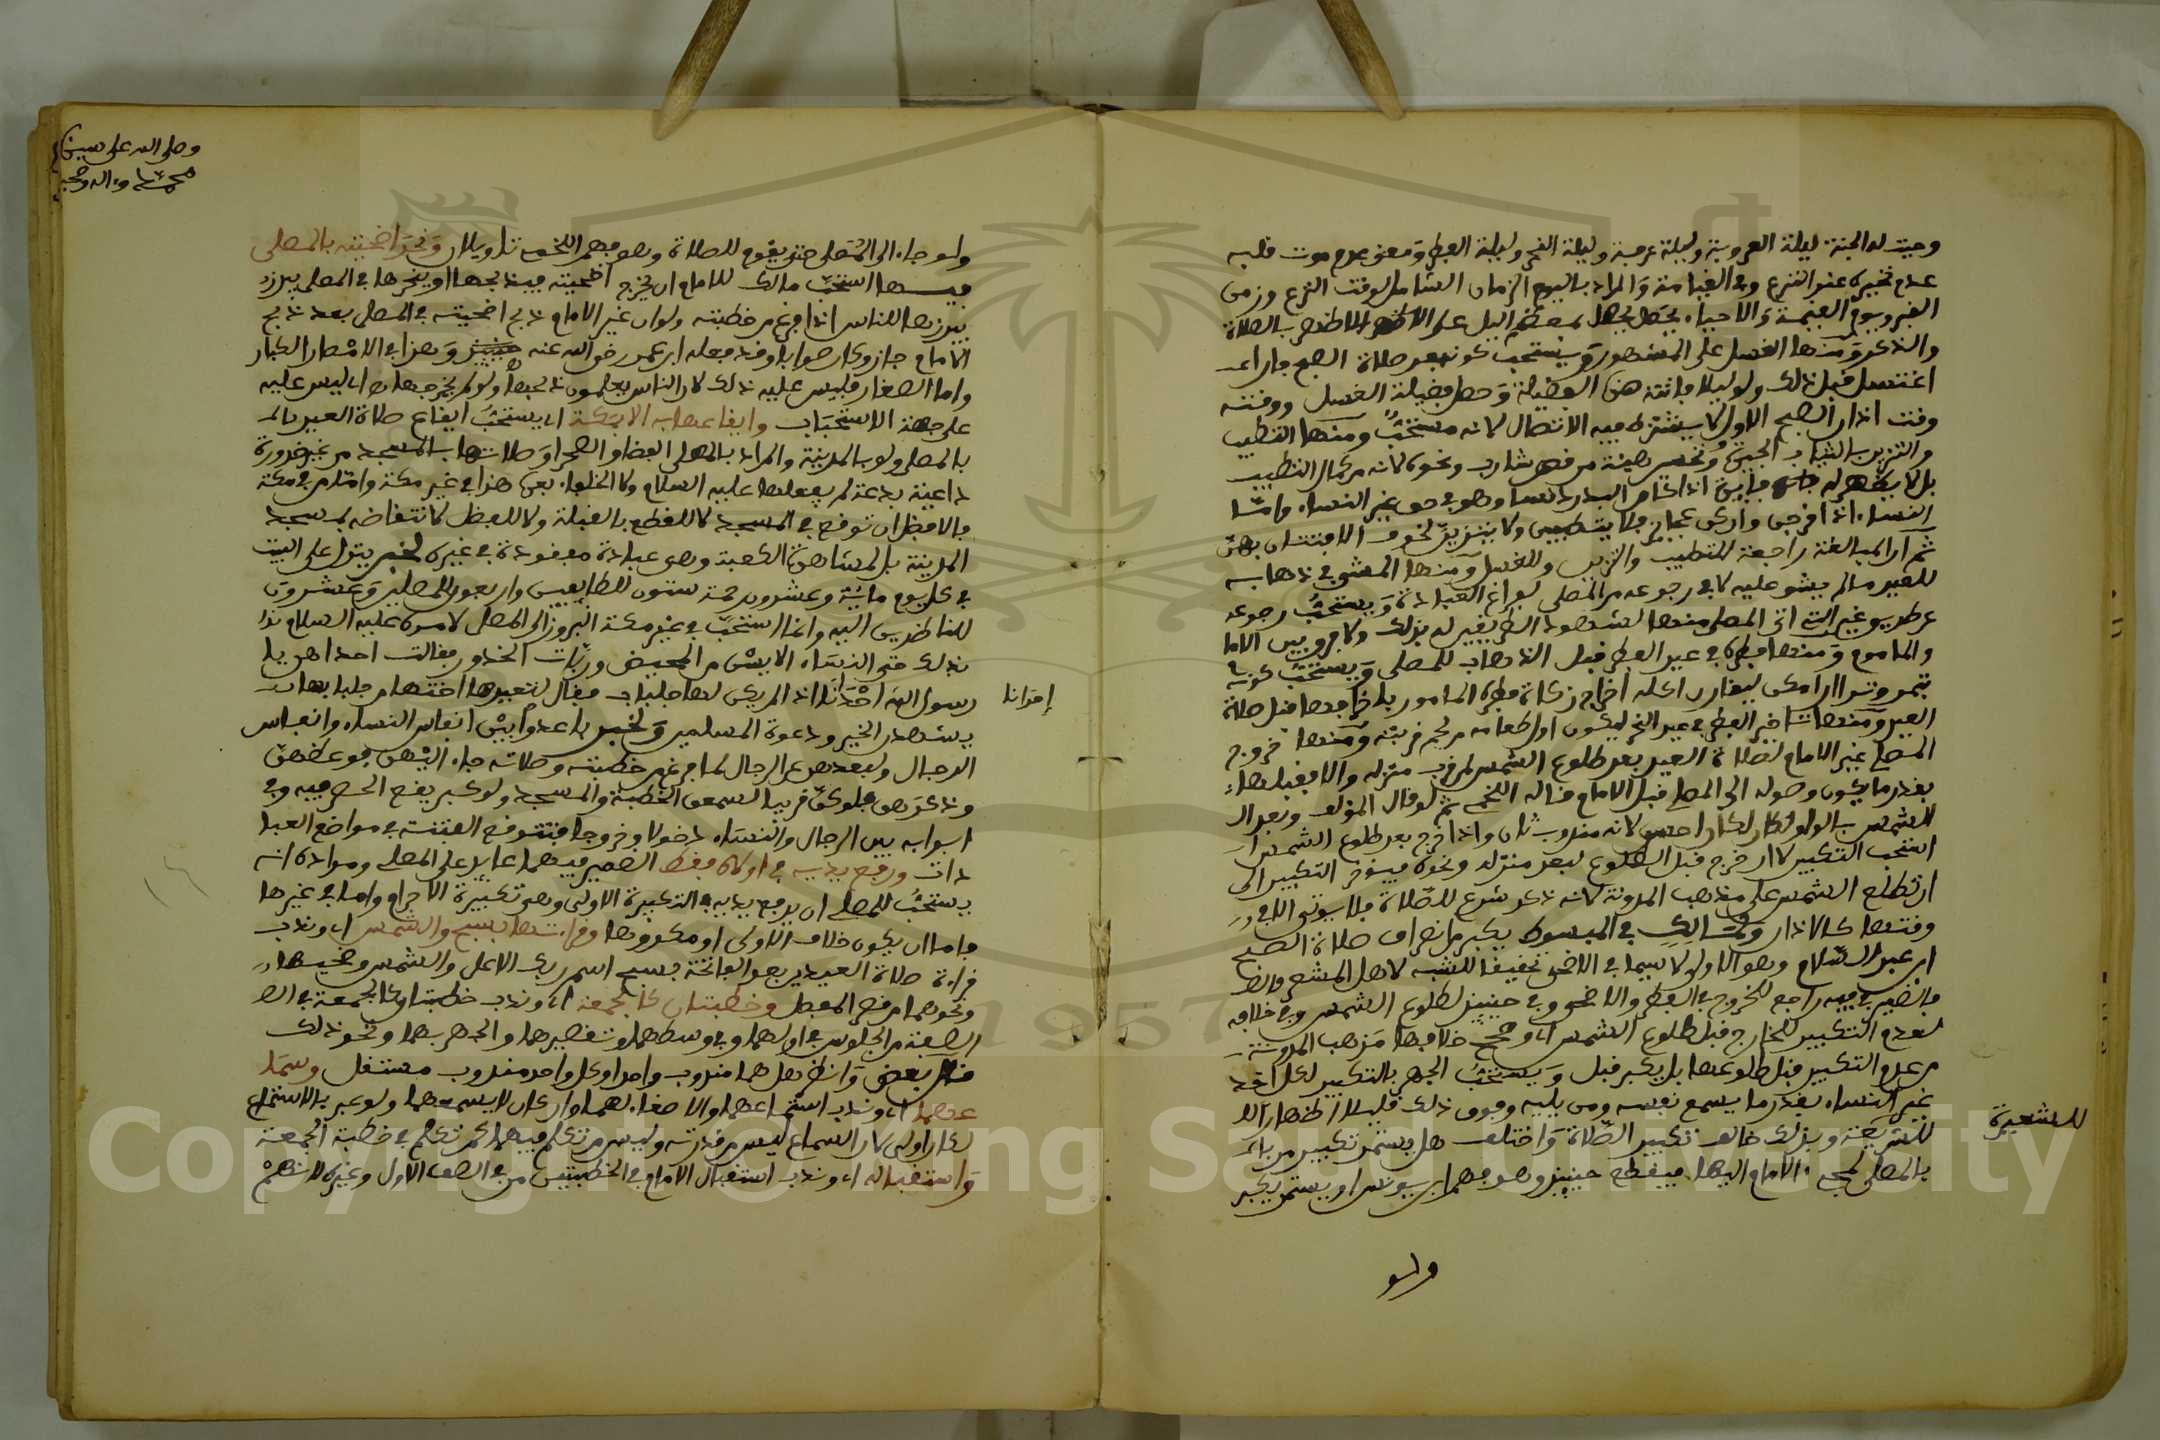 وجبت له الجنة ليلة التروية وليلة عرفة وليلة النحر وليلة الفطر ومعنى عدم موت قلبه
عدم تحيره عند النزع وفي القيامة والمراد باليوم الزمان الشامل لوقت النزع وزمن
القبر ويوم القيمة والاحياء يحصل بمعظم اليل على الاظهر بالصلاة
والذكر ومنها الغسل على المشهور ويستحب كونه بعد صلاة الصبح فان
اغتسل قبل ذلك ولو ليلا فاتته هذه الفضيلة وحصل فضيلة الغسل ووقته
وقت اذان الصبح الاول لا يشترط فيه الاتصال لانه مستحب ومنها التطيب
والتزين بالثياب الجديدة وتحسين هيئة من قص شارب ونحوه لانه من كمال التطييب
بل لا يظهر له فايدة اذا كان البدن دنسا وهو في حق غير النساء واما
النساء اذا خرجن وان كن عجايز فلا يتطيبن ولا يتزين لخوف الافتتان بهن
ثم ان المبالغة راجعة للتطيب والتزين وللغسل ومنها المشي في ذهابه
للعيد ما لم يشق عليه لا في رجوعه من المصلى لفراغ العبادة ويستحب رجوعه
من طريق غير التي اتى المصلى منها لشهود الطريقين له بذلك ولا فرق بين الامام
والماموم ومنها فطره في عيد الفطر قبل الذهاب للمصلى ويستحب كونه
بتمر وترا ان امكن ليقارن اكله اخراج زكاة فطره المامور باخراجها قبل صلاة
العيد ومنها تاخير الفطر في عيد النحر ليكون اول طعامه من لحم قربته ومنها خروج
المصلي غير الامام لصلاة العيد بعد طلوع الشمس لمن قرب منزله والا فقبلها
بقدر ما يكون وصوله الى المصلى قبل الامام قاله اللخمي ثم لو قال المؤلف وبعد ال
الشمس بالواو لكان احسن لانه مندوب ثان واذا خرج بعد طلوع الشمس
استحب التكبير لا ان خرج قبل الطلوع لبعد منزله ونحوه فيؤخر التكبير الى
ان تطلع الشمس على مذهب المدونة لانه ذكر شرع للصلاة فلا يؤتى الا في
وقتها كالاذان وقال مالك في المبسوط يكبر من انصراف صلاة الصبح
ابن عبد السلام وهو الاولى لا سيما في الاضحى تحقيقا للشبه لاهل المشعر
فالضمير في فيه راجع للخروج في الفطر والاضحى وفي حينئذ لطلوع الشمس وفي خلافه
لعدم التكبير للخارج قبل طلوع الشمس اي وصحح خلافها مذهب المدونة
من عدم التكبير قبل طلوعها بل يكبر قبل ويستحب الجهر بالتكبير لكل احد
غير النساء بقدر ما يسمع نفسه ومن يليه وفوق ذلك قليلا اظهارا
للشعيرة
للشريعة وبذلك خالف تكبير الصلاة واختلف هل يستمر تكبير من
بالمصلى لمجيء الامام اليها فيقطع حينئذ وهو فهم ابن يونس او يستمر يكبر
ولو
وصلى الله على سيدنا
محمد وءاله وصحبه
ولو جاء الى المصلى حتى يقوم للصلاة وهو فهم اللخمي تاويلان ونحر اضحيته بالمصلى
استحب مالك للامام ان يخرج اضحيته فيذبحها او ينحرها في المصلى
يبرزها للناس اذا فرغ من خطبته ولو ان غير الامام ذبح اضحيته في المصلى بعد ذبح
الامام جاز وكان صوابا وقد فعله ابن عمر رضي الله عنه وهذا في الامصار الكبار
واما الصغار فليس عليه ذلك لان الناس يعلمون ذبحه ولو لم يخرجها اي ليس عليه
على جهة الاستحباب وايقاعها به الا بمكة اي يستحب ايقاع صلاة العيد
بالمصلى ولو بالمدينة والمراد بالمصلى الفضاء والصحرا وصلاتها بالمسجد من غير ضرورة
داعية بدعة لم يفعلها عليه السلام ولا الخلفاء بعده هذا في غير مكة واما من في مكة
فالافضل ان توقع في المسجد لا للقطع بالقبلة ولا للفضل لانتقاضه بمسجد
المدينة بل لمشاهدة الكعبة وهي عبادة مفقودة في غيره لخبر ينزل على البيت
في كل يوم ماية وعشرون رحمة ستون للطايفين واربعون للمصلين وعشرون
للناظرين اليه وانما استحب في غير مكة البروز الى المصلى لامره عليه السلام
بذلك حتى النساء الحيض وربات الخدور فقالت احداهن يا
رسول الله احدانا اذا لم يكن لها جلباب فقال لتعيرها اختها من جلبابها
إحدانا
يشهدن الخير ودعوة المسلمين ولخبر باعدوا بين انفاس النساء وانفاس
الرجال ولبعدهن عن الرجال لما فرغ من خطبته وصلاته جاء اليهن فوعظهن
وذكرهن فلو كن قريبا لسمعن الخطبة والمسجد ولو كبر يقع الحصر فيه وفي
ابوابه بين الرجال والنساء دخولا وخروجا فتتوقع الفتنة في مواضع العبا
دات ورفع يديه في اولاه فقط الضمير فيهما عايد على المصلي ومراده انه
يستحب للمصلي ان يرفع يديه في التكبيرة الاولى وهي تكبيرة الاحرام واما في غيرها
فاما ان يكون خلاف الاولى او مكروها وقراءتها بسبح والشمس اي وندب
قراءة صلاة العيدين بعد الفاتحة بسبح اسم ربك الاعلى والشمس وضحيها
ونحوهما من قصار المفصل وخطبتان كالجمعة اي وندب خطبتان كالجمعة في
الصفة من الجلوس في اولهما وفي وسطهما وتقصيرهما والجهر بهما ونحو ذلك
قال بعض وانظر هل هما مندوب واحد او كل واحد مندوب مستقل وسما
عهما اي وندب استماعهما والاصغاء لهما وان كان لا يسمعهما ولو عبر بالاستماع
لكان اولى لان السماع ليس من قدرته وليس من تكلم فيهما كمن تكلم في خطبة الجمعة
واستقباله اي وندب استقبال الامام في الخطبتين من في الصف الاول وغيره لانهم